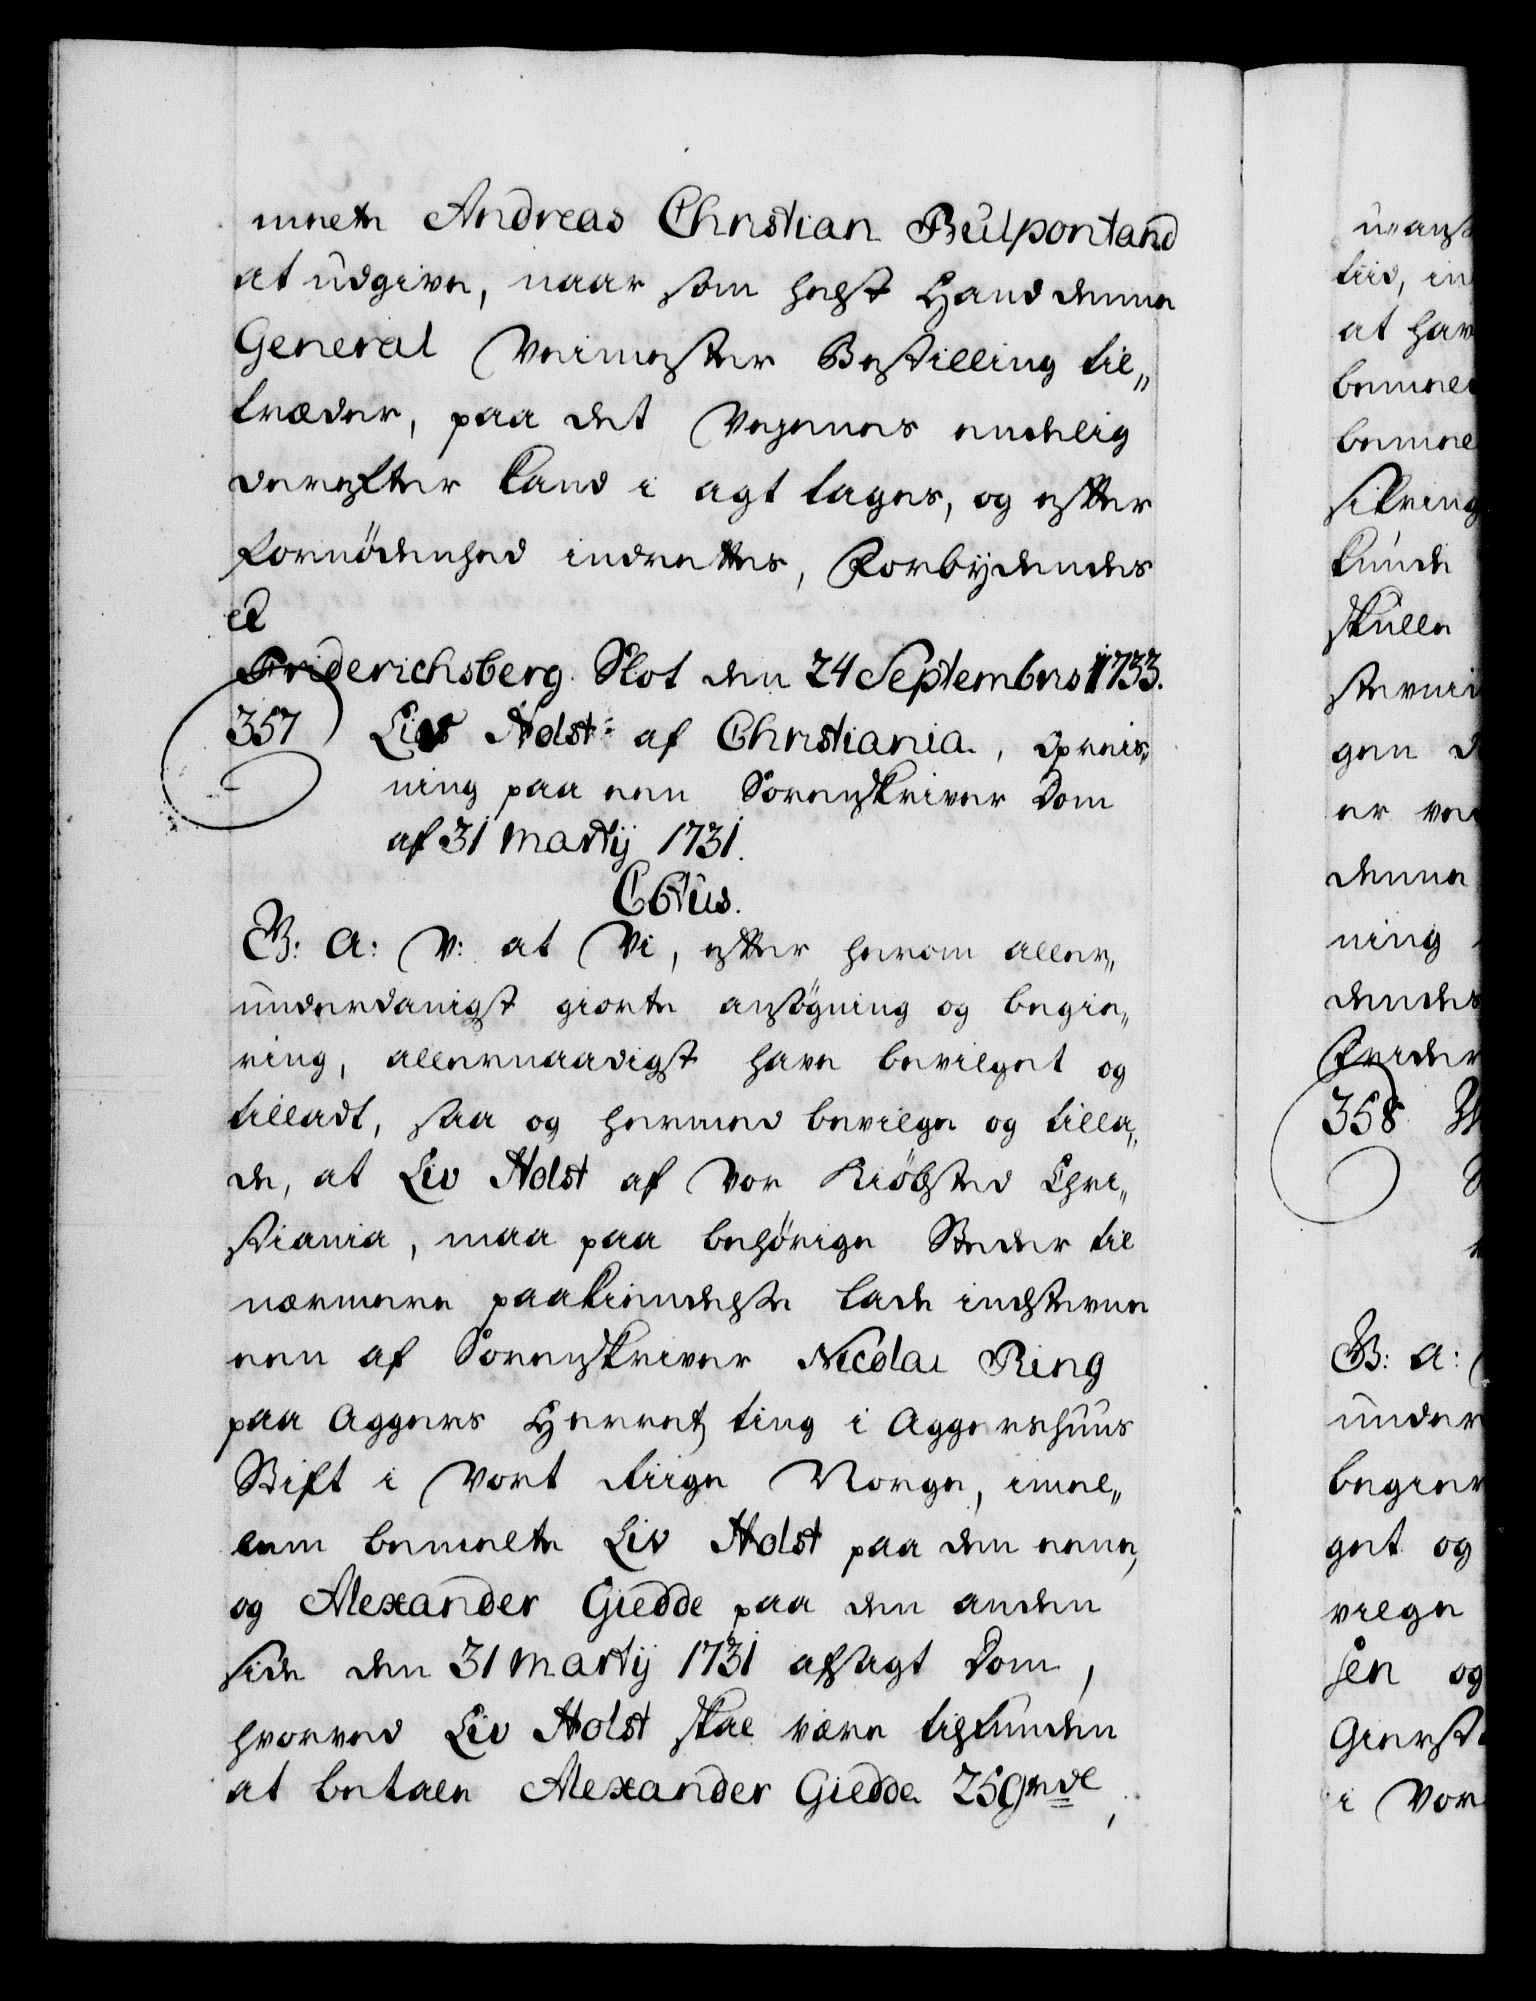 melte Andreas Christian Bulpontand
at udgive, naar som helst Hand denne
General Veimester Bestilling til„
træder, paa det Veyenes endelig
derefter kand i agt tages, og efter
fornødenhed indrettes, Forbydendes
et
Friderichsberg Slot den 24 Septembris 1733.
357 Liv Holst af Christiania, opreis„
ning paa een Sorenskriver Dom
af 31 Martij 1731.
C6tus.
G: A: V: at Vi, efter herom aller„
underdanigst giorte ansøgning og begie„
ring, allernaadigst have bevilget og
tilladt, saa og hermed bevilge og tilla„
de, at Liv Holst af Vor Kiøbsted Chri„
stiania, maa paa behørige Steder til
nærmere paakiendelse lade indstevne
een af Sorenskriver Nicolai Ring
paa Aggers Herretz ting i Aggershuus
Stift i Vort Riige Norge, imel„
lem bemelte Liv Holst paa den eene,
og Alexander Giedde paa den anden
side den 31 Martij 1731 afsagt Dom,
hvorved Liv Holst skal være tilfunden
at betale Alexander Giedde 250 rdl,
uans
tiid, in
at hav
bemel
bemel
sikring
kunde
skulle
stevni
gen d
er ve
denne
ning
dendes
Frider
358
G: A:
under
begier
get og
vilge
sen og
Gierst
i Vor